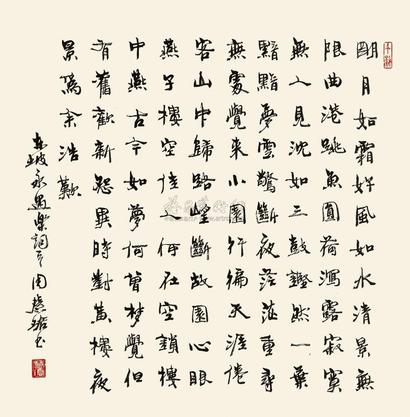 明月如霜好風如水清景無
限曲港跳魚圓荷瀉露寂寞
無人見沈如三鼓鏗然一葉
黯黯夢雲驚斷夜茫茫重尋
無處覺來小園行遍天涯倦
客山中歸路望斷故園心眼
燕子樓空佳人何在空鎖樓
中燕古今如夢何曾夢覺但
有舊歡新怨異時對黃樓夜
景爲余浩歎
東坡永遇樂詞 周慧珺書